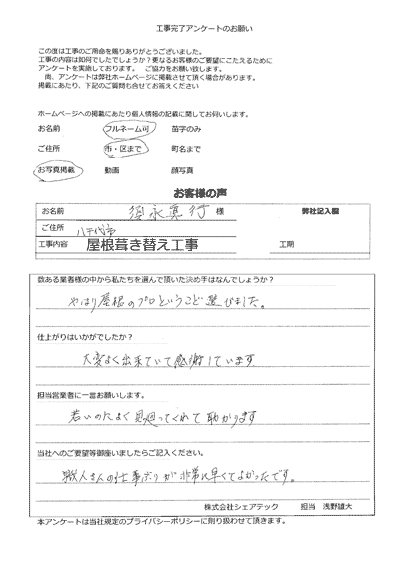 工事完了アンケートのお願い
この度は工事のご用命を賜りありがとうございました。
工事の内容は如何でしたでしょうか？更なるお客様のご要望にこたえるために
アンケートを実施しております。　ご協力をお願い致します。
尚、アンケートは弊社ホームページに掲載させて頂く場合があります。
掲載にあたり、下記のご質問も合せてお答えください
ホームページへの掲載にあたり個人情報の記載に関してお伺いします。
お名前　フルネーム可　苗字のみ
ご住所　市・区まで　町名まで
お写真掲載　動画　顔写真
お客様の声
お名前　須永真行　様　弊社記入欄
ご住所　八千代市
工事内容　屋根葺き替え工事　工期
数ある業者様の中から私たちを選んで頂いた決め手はなんでしょうか？
やはり屋根のプロということで選びました。
仕上がりはいかがでしたか？
大変よく出来ていて感謝しています
担当営業者に一言お願いします。
若いのによく見廻ってくれて助かります
当社へのご要望等御座いましたらご記入ください。
職人さんの仕事ぶりが非常に早くてよかったです。
株式会社シェアテック　担当　浅野雄大
本アンケートは当社規定のプライバシーポリシーに則り扱わせて頂きます。